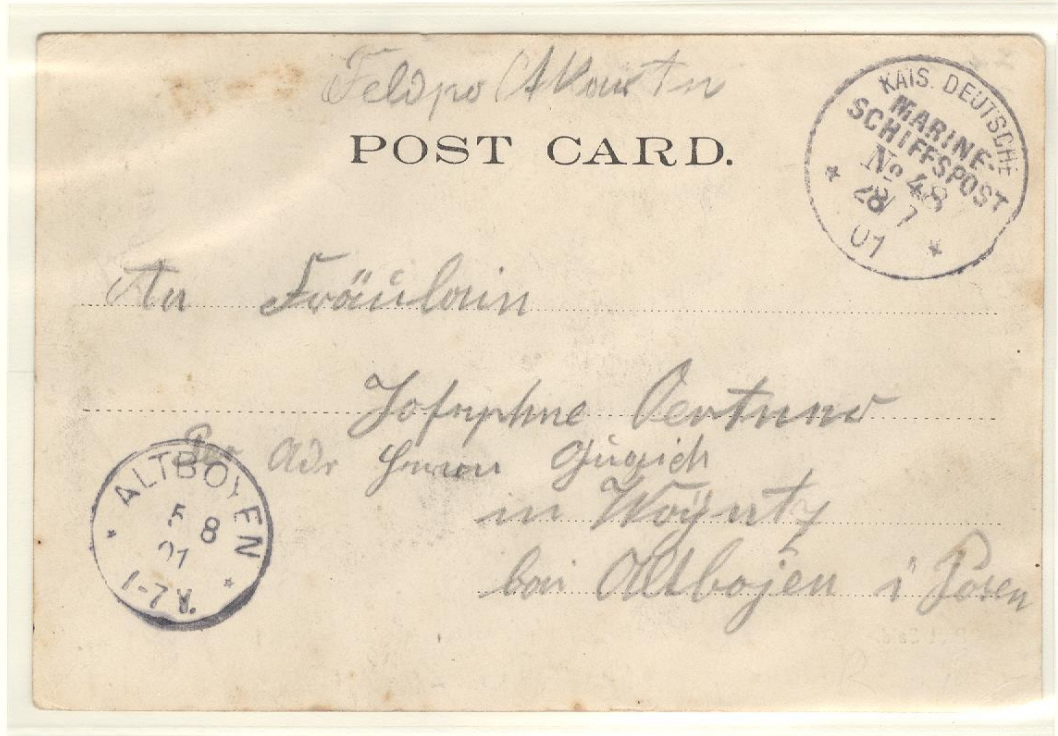 Feldpostkarte
POST CARD.
KAIS. DEUTSCHE
MARINE-
SCHIFFSPOST
No 48
28/7
01
An Fräulein
Josephne
Per Adr Herrn
in
bei Altbojen i Posen
ALTBOYEN
5 8
01
1-2 N.